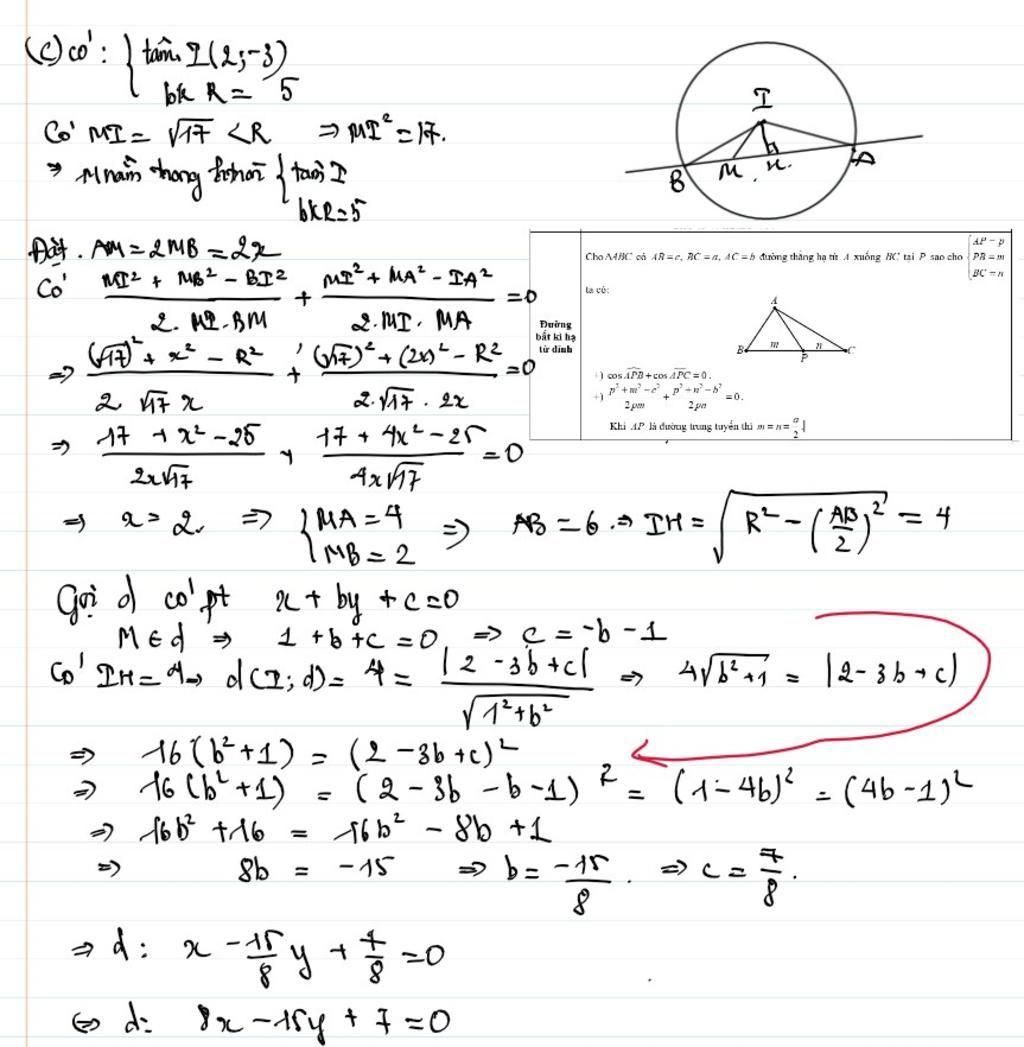 (C) có: { tâm I(2;-3)
bk R = 5
Có MI = √17 < R ⇒ MI² = 17.
⇒ M nằm trong { tâm I
bk R=5
I
B M H A
Đặt. AM = 2MB = 2x
Có (MI² + MB² - BI²)/(2. MI. BM) + (MI² + MA² - IA²)/(2. MI. MA) = 0
⇒ ((√17)² + x² - R²)/(2 √17 x) + ((√17)² + (2x)² - R²)/(2.√17 . 2x) = 0
⇒ (17 + x² - 25)/(2x√17) + (17 + 4x² - 25)/(4x√17) = 0
Đường bất kì hạ từ đỉnh
Cho ΔABC có AB = c, BC = a, AC = b đường thẳng hạ từ A xuống BC tại P sao cho { AP = p
PB = m
BC = n
ta có:
A
B m P n C
+) cos APB + cos APC = 0.
+) (p² + m² - c²)/(2pm) + (p² + n² - b²)/(2pn) = 0.
Khi AP là đường trung tuyến thì m = n = a/2
⇒ x = 2. ⇒ { MA = 4
MB = 2 ⇒ AB = 6 ⇒ IH = √(R² - (AB/2)²) = 4
Gọi d có pt x + by + c = 0
M ∈ d ⇒ 1 + b + c = 0 ⇒ c = -b - 1
Có IH = 4 → d(I; d) = 4 = |2 - 3b + c|/√(1² + b²) ⇒ 4√(b² + 1) = |2 - 3b + c|
⇒ 16(b² + 1) = (2 - 3b + c)²
⇒ 16(b² + 1) = (2 - 3b - b - 1)² = (1 - 4b)² = (4b - 1)²
⇒ 16b² + 16 = 16b² - 8b + 1
⇒ 8b = -15 ⇒ b = -15/8. ⇒ c = 7/8.
⇒ d: x - 15/8 y + 7/8 = 0
⇔ d: 8x - 15y + 7 = 0